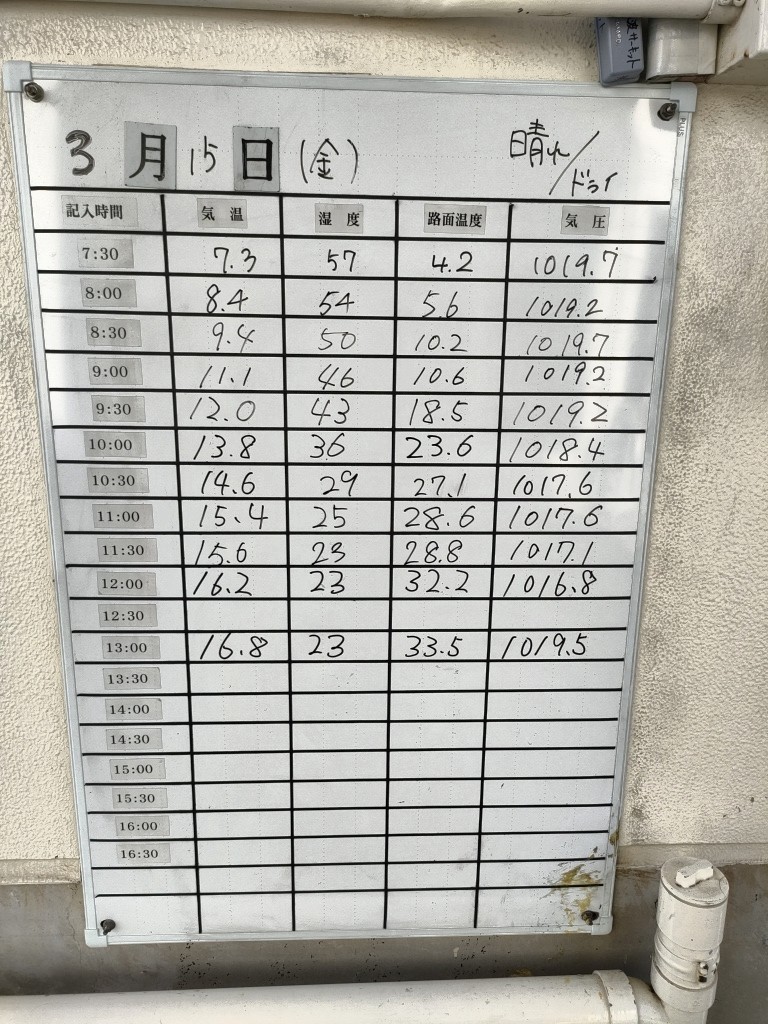 3月15日(金) 晴れ/ドライ
記入時間 気温 湿度 路面温度 気圧
7:30 7.3 57 4.2 1019.7
8:00 8.4 54 5.6 1019.2
8:30 9.4 50 10.2 1019.7
9:00 11.1 46 10.6 1019.2
9:30 12.0 43 18.5 1019.2
10:00 13.8 36 23.6 1018.4
10:30 14.6 29 27.1 1017.6
11:00 15.4 25 28.6 1017.6
11:30 15.6 23 28.8 1017.1
12:00 16.2 23 32.2 1016.8
12:30
13:00 16.8 23 33.5 1019.5
13:30
14:00
14:30
15:00
15:30
16:00
16:30
PLUS
波サーキット